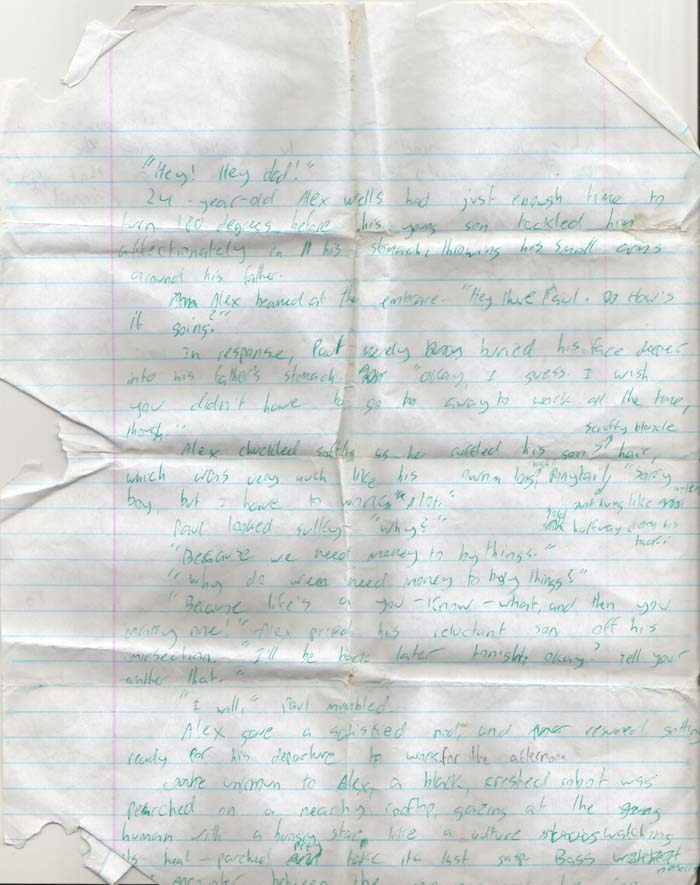 "Hey! Hey dad!"
24-year-old Alex Wells had just enough time to
turn 180 degrees before his young son tackled him
affectionately in his stomach, throwing his small arms
around his father.
Alex beamed at the embrace. "Hey there Paul. How's
it going?"
In response, Paul merely buried his face deeper
into his father's stomach. "Okay, I guess I wish
you didn't have to go to away to work all the time,
though."
scruffy blonde
Alex chuckled softly as he ruffled his son's hair,
which was very much like his own long, ponytail, "Sorry
boy, but I have to work alot."
that hung like
halfway down his
back.
Paul looked sulky. "Why?"
"Because we need money to by things."
"Why do we need money to buy things?"
"Because life's a you-know-what, and then you
marry one!" Alex pried his reluctant son off his
midsection. "I'll be back later tonight, okay? Tell your
mother that."
"I will," Paul mumbled.
Alex gave a satisfied nod, and resumed getting
ready for his departure to work for the afternoon
unknown to Alex, a black, crested robot was
perched on a nearby rooftop, gazing at the
human with a hungry stare, like a vulture watching
its heat-parched prey take its last gasp. Bass
encounter between the